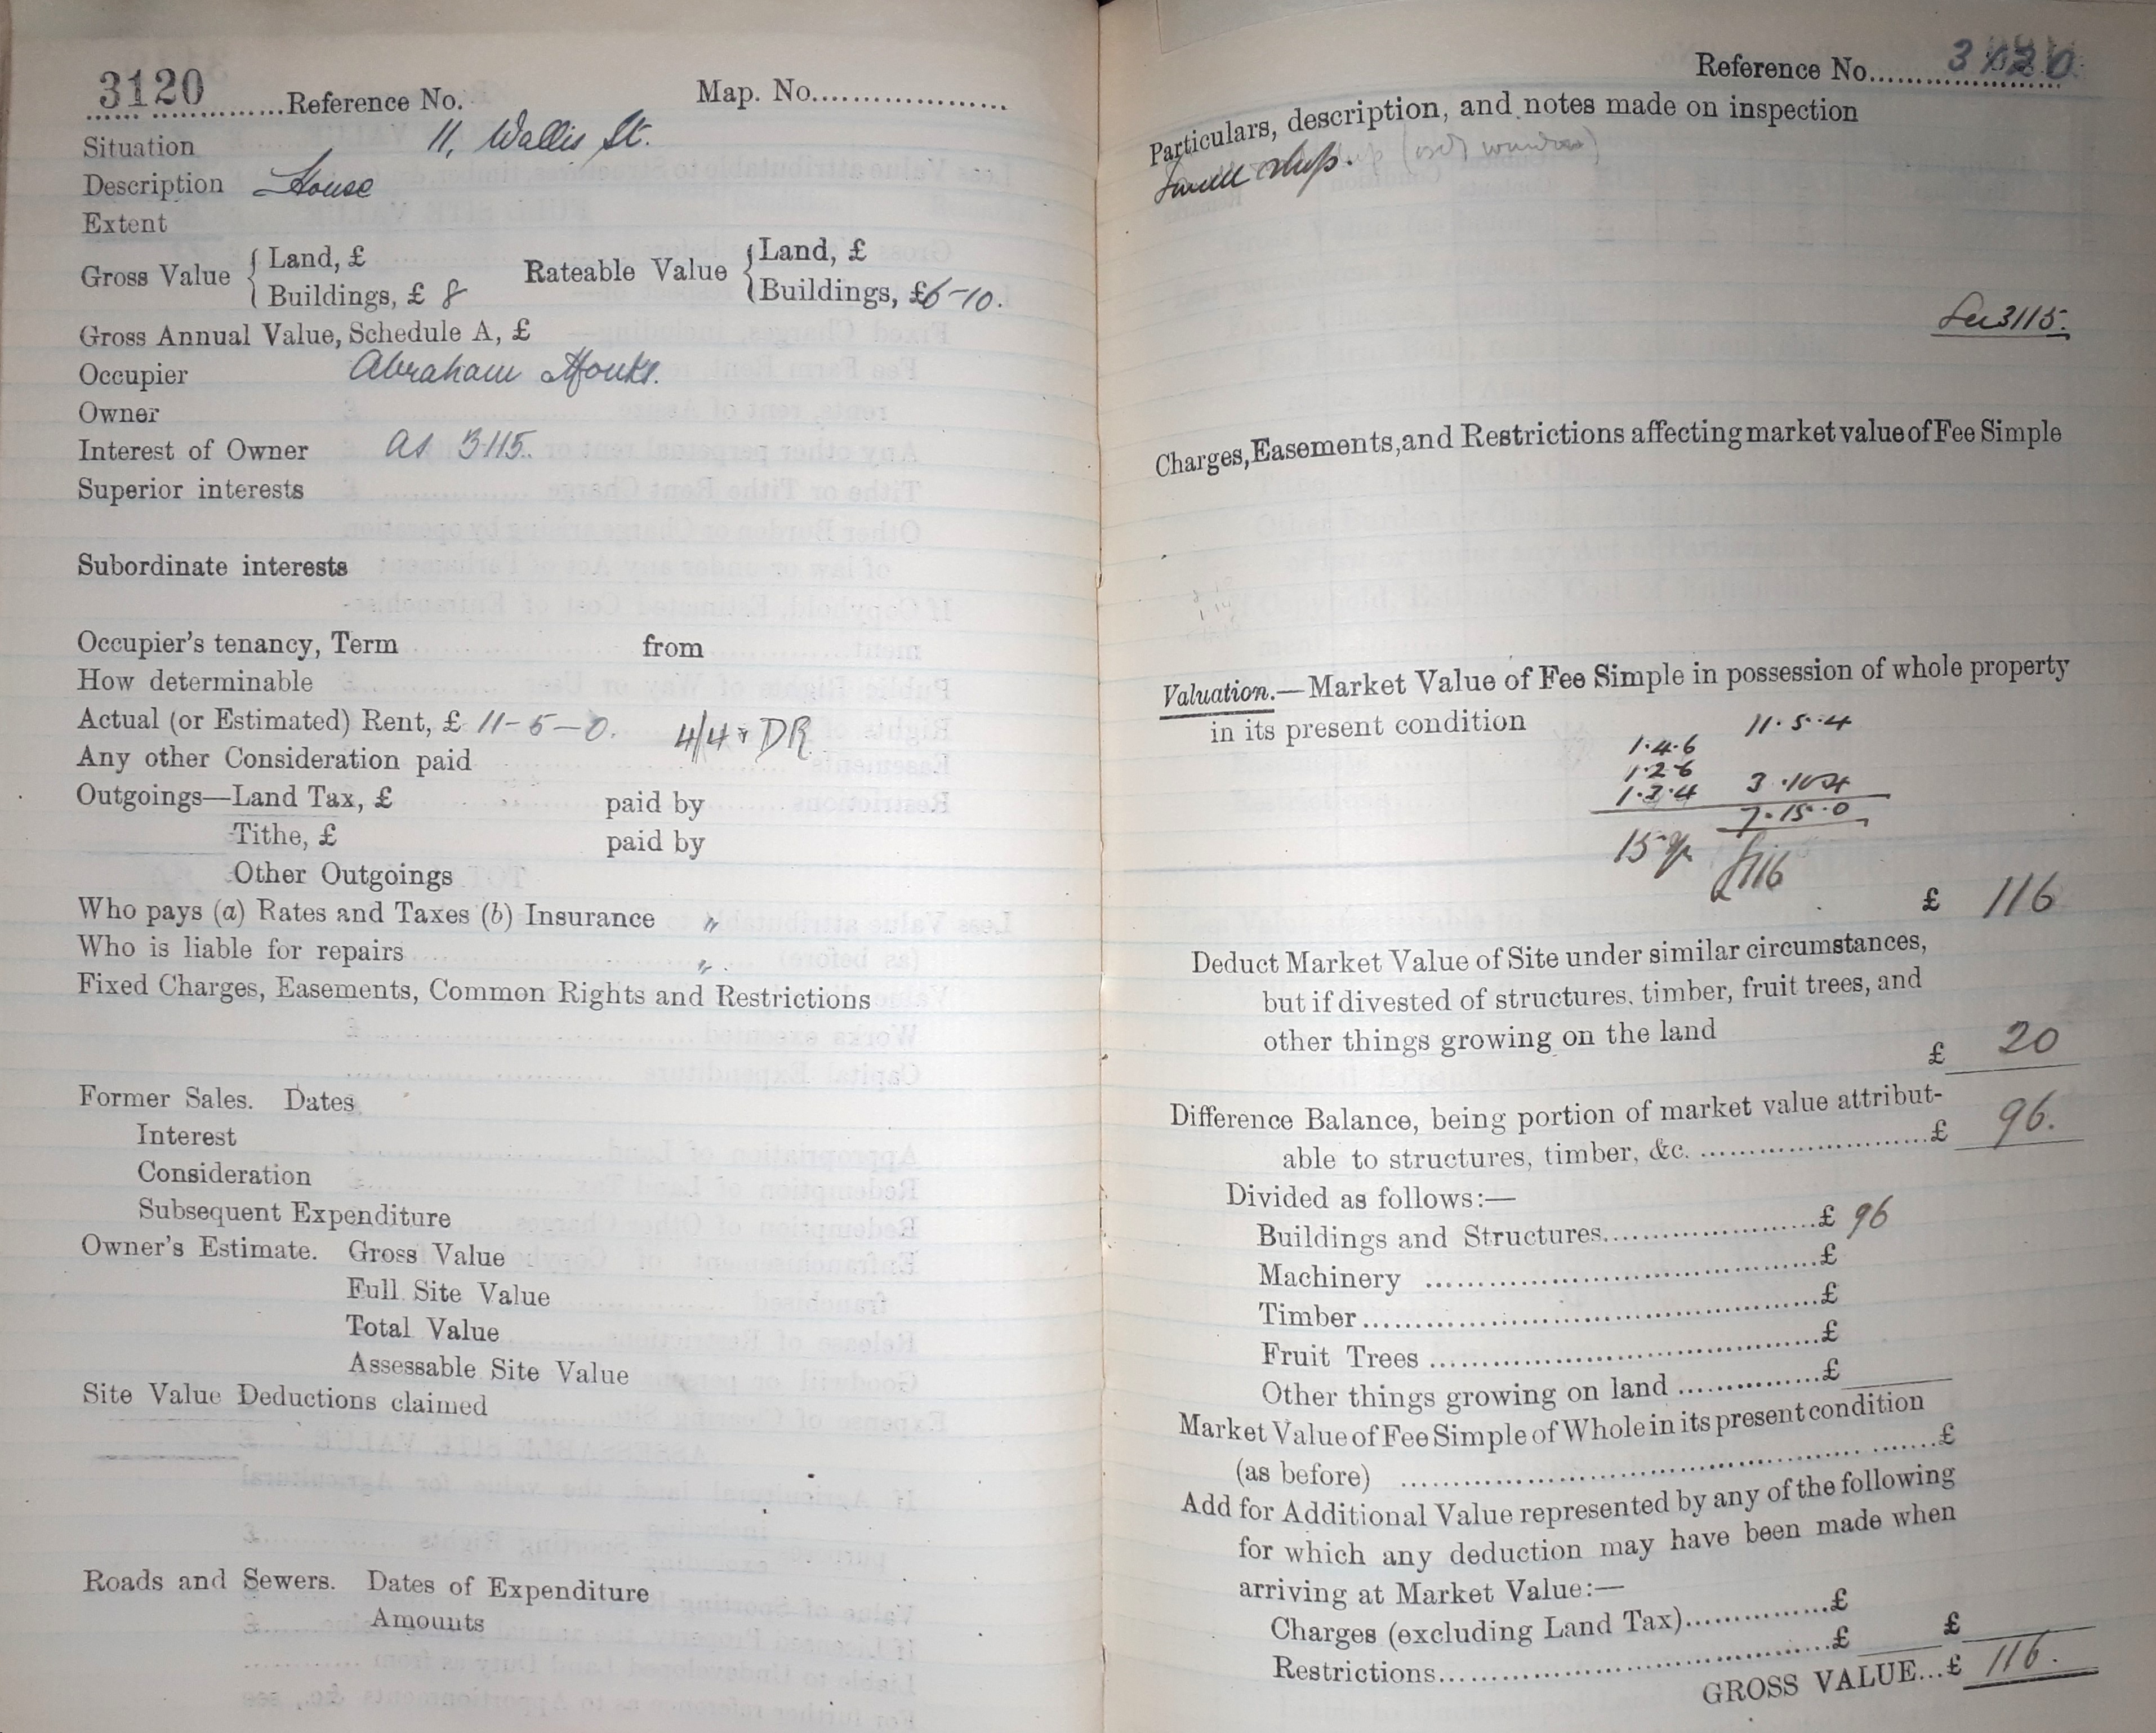 3120 ...... Reference No. Map. No....................
Situation 11, Wallis St.
Description House
Extent
Gross Value { Land, £ Rateable Value { Land, £
Buildings, £ 8 Buildings, £6-10.
Gross Annual Value, Schedule A, £
Occupier Abraham Monks.
Owner
Interest of Owner as 3115.
Superior interests
Subordinate interests
Occupier's tenancy, Term from
How determinable
Actual (or Estimated) Rent, £ 11-5-0. 4/4 & DR
Any other Consideration paid
Outgoings—Land Tax, £ paid by
Tithe, £ paid by
Other Outgoings
Who pays (a) Rates and Taxes (b) Insurance "
Who is liable for repairs "
Fixed Charges, Easements, Common Rights and Restrictions
Former Sales. Dates
Interest
Consideration
Subsequent Expenditure
Owner's Estimate. Gross Value
Full Site Value
Total Value
Assessable Site Value
Site Value Deductions claimed
Roads and Sewers. Dates of Expenditure
Amounts
Reference No. 3120
Particulars, description, and notes made on inspection
Small shop.
See 3115.
Charges, Easements, and Restrictions affecting market value of Fee Simple
Valuation.—Market Value of Fee Simple in possession of whole property
in its present condition 11.5.4
1.4.6
1.2.6
1.3.4 3.10.4
7.15.0
15 yp £116
£ 116
Deduct Market Value of Site under similar circumstances,
but if divested of structures, timber, fruit trees, and
other things growing on the land
£ 20
Difference Balance, being portion of market value attribut-
able to structures, timber, &c. ........................£ 96.
Divided as follows:—
Buildings and Structures........................£ 96
Machinery ........................£
Timber........................£
Fruit Trees ........................£
Other things growing on land ................£
Market Value of Fee Simple of Whole in its present condition
(as before) ........................£
Add for Additional Value represented by any of the following
for which any deduction may have been made when
arriving at Market Value:—
Charges (excluding Land Tax)................£
Restrictions........................£ £
GROSS VALUE...£ 116.